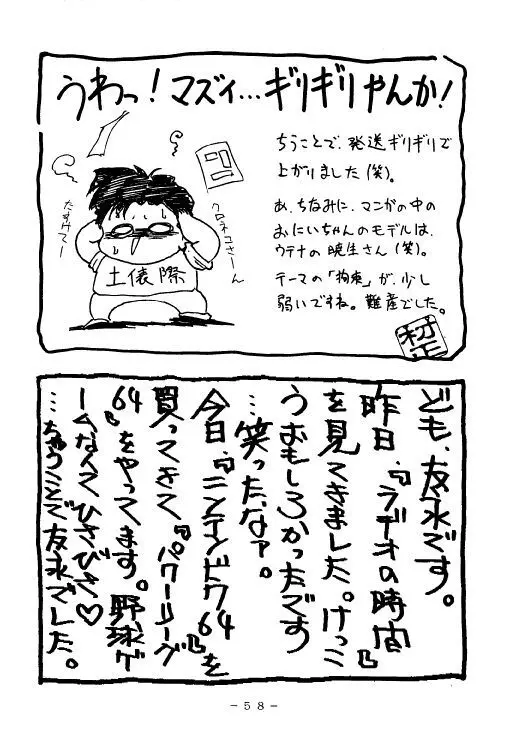 うわっ!マズィ…ギリギリやんか!
ちうことで、発送ギリギリで
上がりました(笑)。
あ、ちなみに、マンガの中の
おにいちゃんのモデルは、
ウテナの暁生さん(笑)。
テーマの「拘束」が、少し
弱いですね。難産でした。
たすけてー
クロネコさーん
土俵際
ども、友永です。
昨日、『ラヂオの時間』
を見てきました。けっこ
うおもしろかったです
…笑ったなァ。
今日、『ニンテンドウ64』を
買ってきて『パワーリーグ
64』をやってます。野球ゲ
ームなんてひさびさ♡
…ちゅうことで友永でした。
-58-